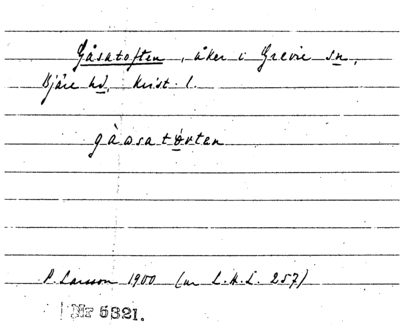 Gåsatoften, åker i Grevie sn,
Bjäre hd, Krist. l.
gåasatoften
P. Larsson 1900 (ur L.H.L. 257)
Nr 5321.